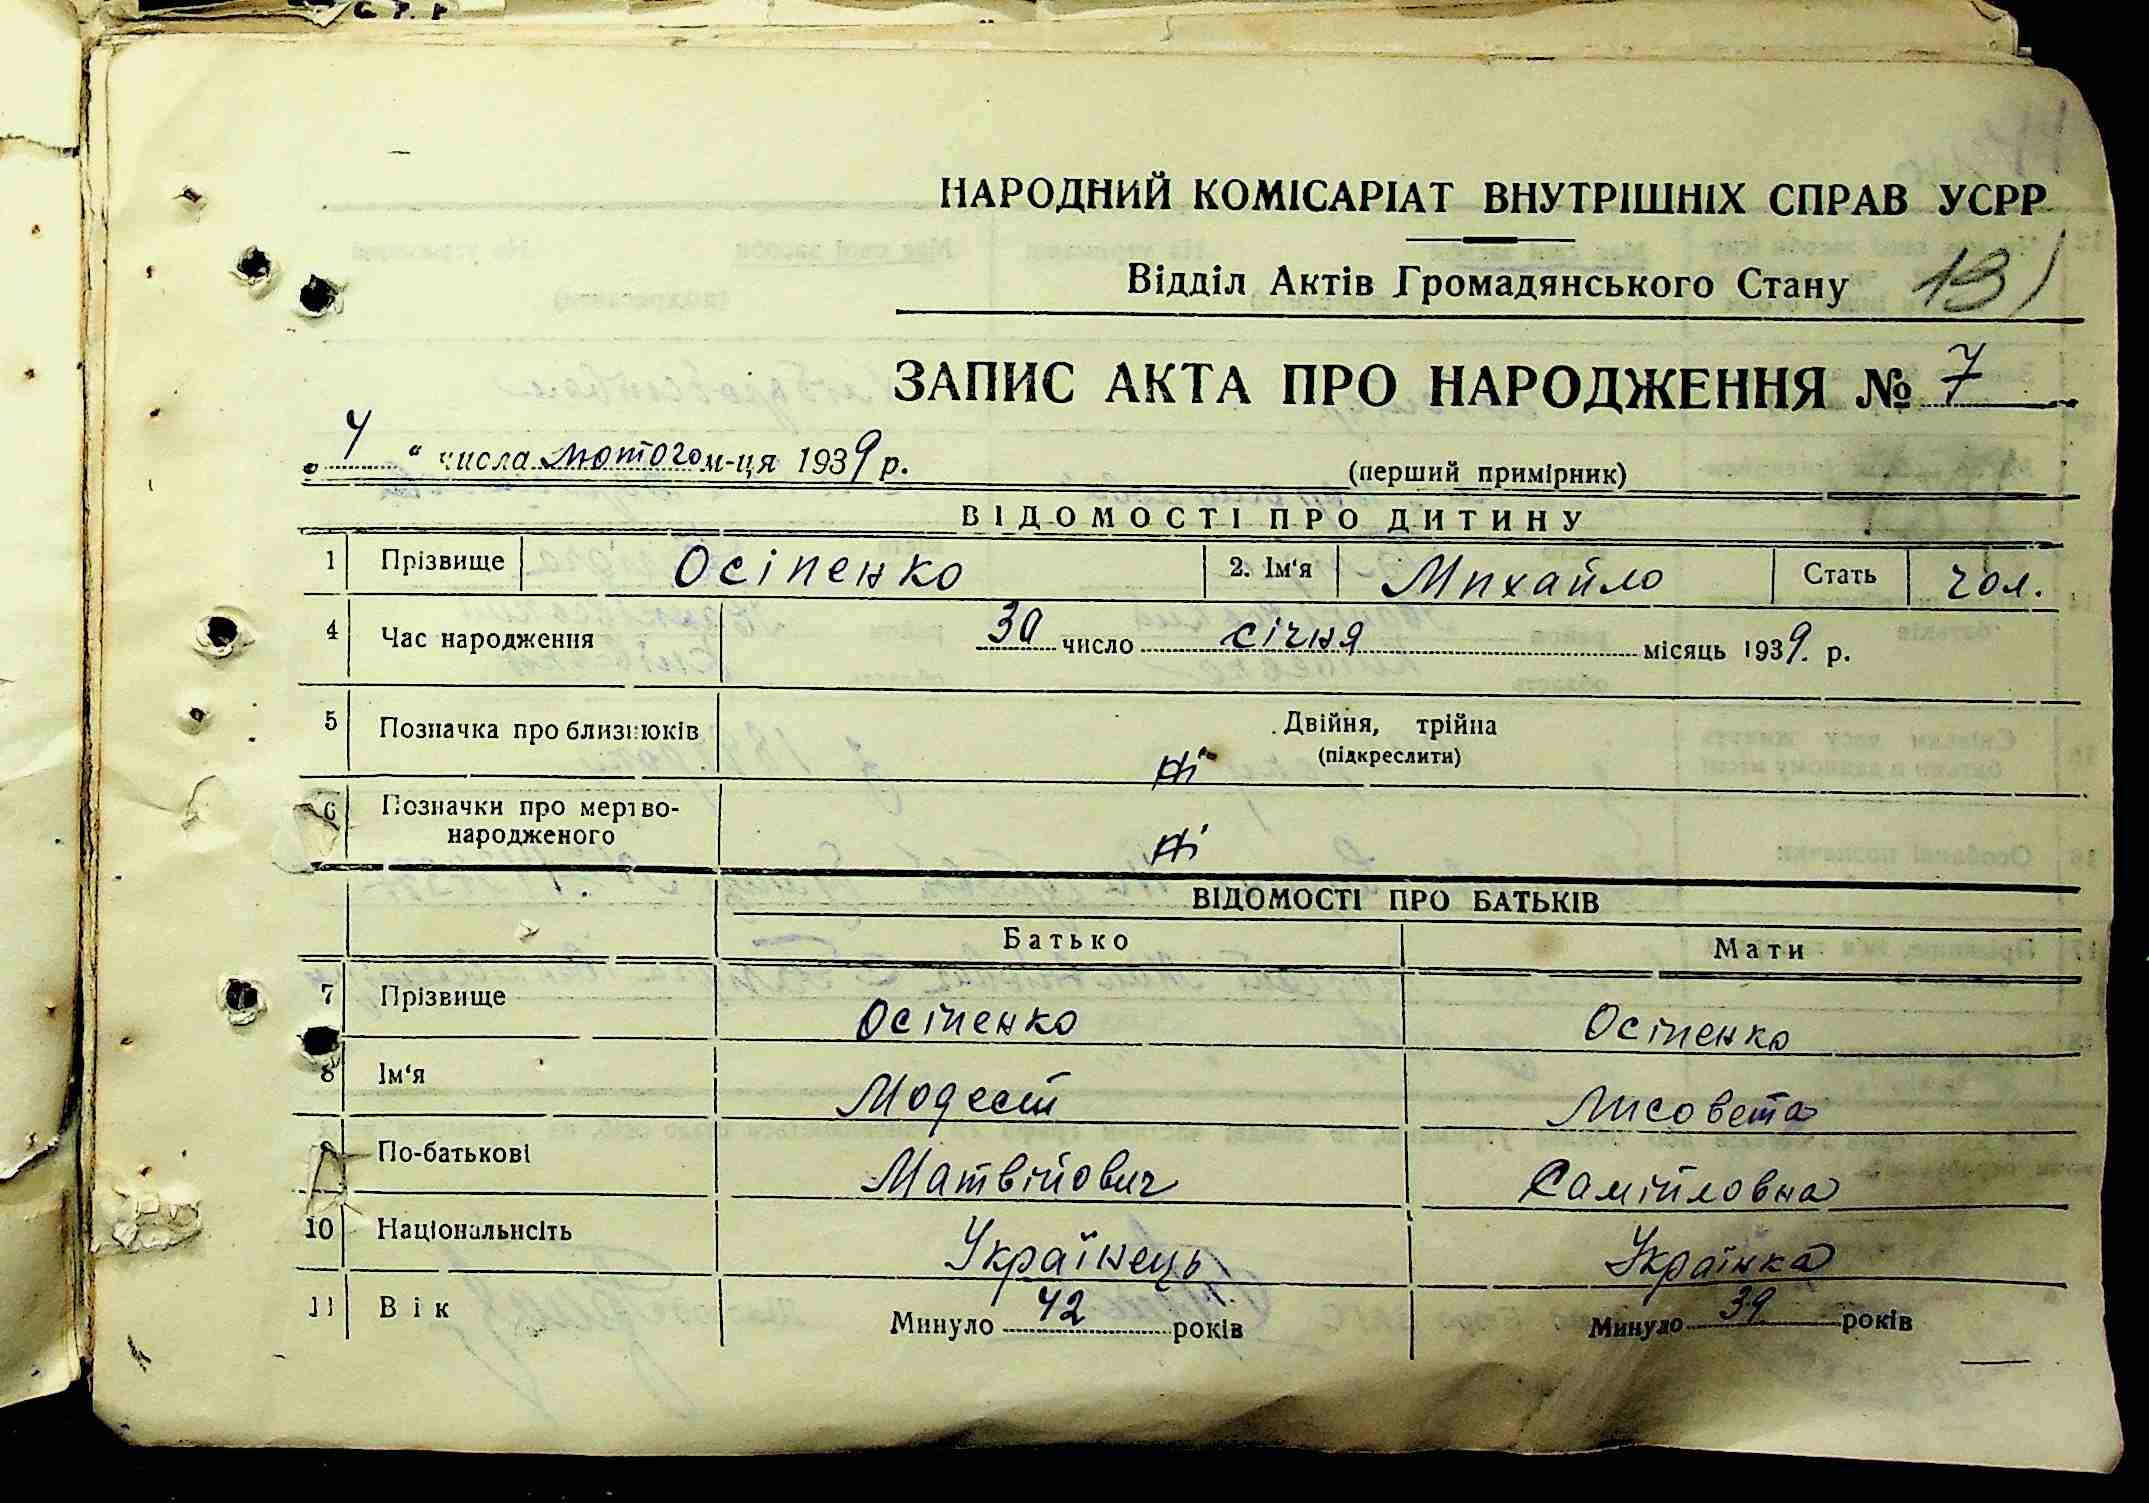 НАРОДНИЙ КОМІСАРІАТ ВНУТРІШНІХ СПРАВ УСРР
Відділ Актів Громадянського Стану 131
ЗАПИС АКТА ПРО НАРОДЖЕННЯ № 7
„ 4 “ числа лютого м-ця 1939 р. (перший примірник)
ВІДОМОСТІ ПРО ДИТИНУ
1 Прізвище Осіпенко 2. Ім'я Михайло Стать чол.
4 Час народження 30 число січня місяць 1939. р.
5 Позначка про близнюків Двійня, трійна
(підкреслити)
ні
6 Позначки про мертво-
народженого ні
ВІДОМОСТІ ПРО БАТЬКІВ
Батько Мати
7 Прізвище Осіпенко Осіпенко
8 Ім'я Модест Лисовета
9 По-батькові Матвійович Самійловна
10 Національнсіть Українець Українка
11 Вік Минуло 42 років Минуло 39 років